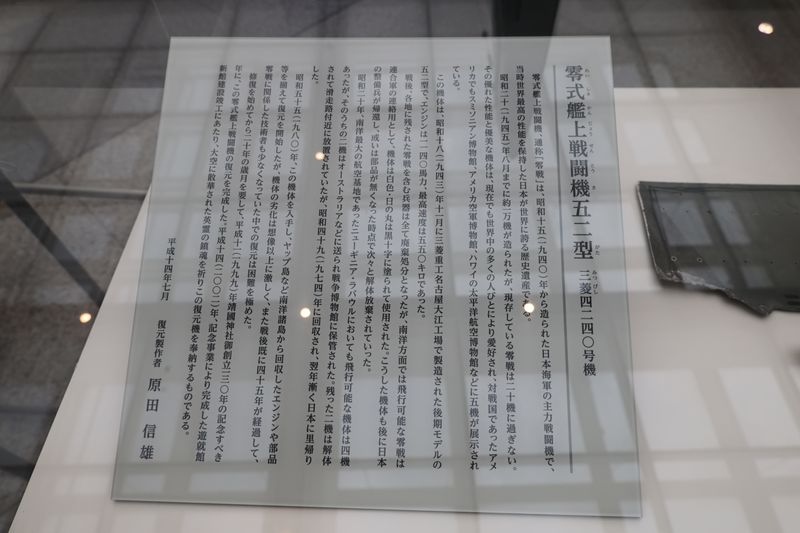 零式艦上戦闘機五二型 三菱四二四〇号機
零式艦上戦闘機、通称「零戦」は、昭和十五(一九四〇)年から造られた日本海軍の主力戦闘機で、
当時世界最高の性能を保持した日本が世界に誇る歴史遺産である。
昭和二十(一九四五)年八月までに約一万機が造られたが、現存している零戦は二十機に過ぎない。
その優れた性能と優美な機体は、現在でも世界中の多くの人びとにより愛好され、対戦国であったアメ
リカでもスミソニアン博物館、アメリカ空軍博物館、ハワイの太平洋航空博物館などに五機が展示され
ている。
この機体は、昭和十八(一九四三)年十一月に三菱重工名古屋大江工場で製造された後期モデルの
五二型で、エンジンは一一四〇馬力、最高速度は五五〇キロであった。
戦後、各地に残された零戦を含む兵器は全て廃棄処分となったが、南洋方面では飛行可能な零戦は
連合軍の連絡用として、機体は白色・日の丸は黒十字に塗られて使用された。こうした機体も後に日本
の整備兵が帰還し、或いは部品が無くなった時点で次々と解体放棄されていった。
昭和二十年、南洋最大の航空基地であったニューギニア・ラバウルにおいても飛行可能な機体は四機
あったが、そのうちの二機はオーストラリアなどに送られ戦争博物館に保管された。残った二機は解体
されて滑走路付近に放置されていたが、昭和四十九(一九七四)年に回収され、翌年漸く日本に里帰り
した。
昭和五十五(一九八〇)年、この機体を入手し、ヤップ島など南洋諸島から回収したエンジンや部品
等を揃えて復元を開始したが、機体の劣化は想像以上に激しく、また戦後既に四十五年が経過して、
零戦に関係した技術者も少なくなっていた中での復元は困難を極めた。
修復を始めてから二十年の歳月を要して、平成十一(一九九九)年靖國神社御創立一三〇年の記念すべき
年に、この零式艦上戦闘機の復元を完成した。平成十四(二〇〇二)年、記念事業により完成した遊就館
新館建設竣工にあたり、大空に散華された英霊の鎮魂を祈りこの復元機を奉納するものである。
平成十四年七月
復元製作者 原田 信雄